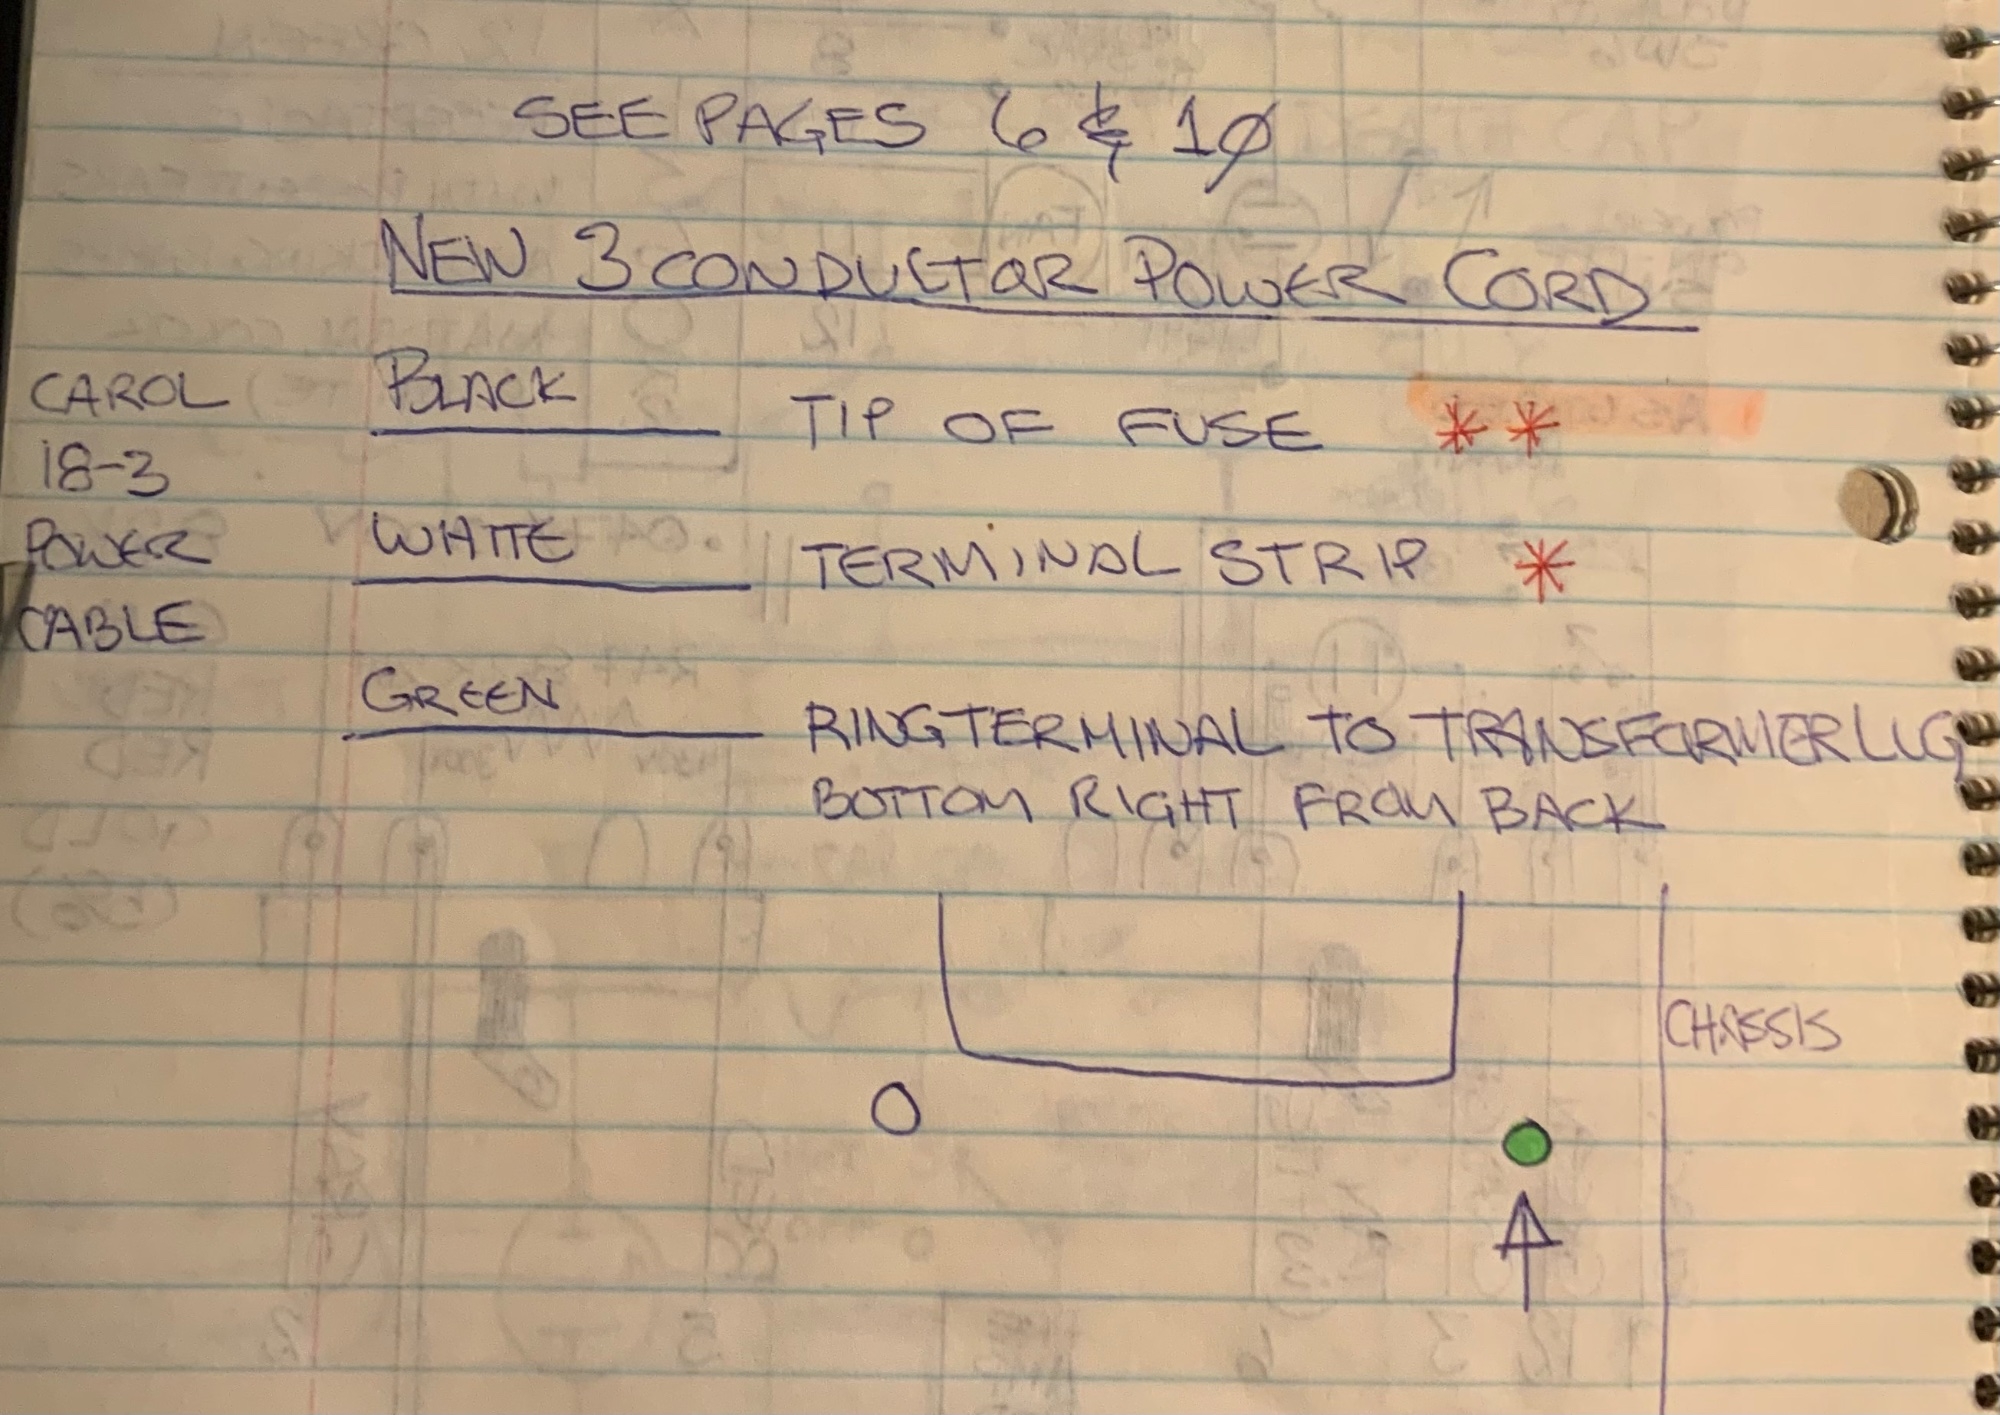 SEE PAGES 6 & 1Ø
NEW 3 CONDUCTOR POWER CORD
CAROL
18-3
POWER
CABLE
BLACK TIP OF FUSE **
WHITE TERMINAL STRIP *
GREEN RING TERMINAL TO TRANSFORMER LUG
BOTTOM RIGHT FROM BACK
CHASSIS